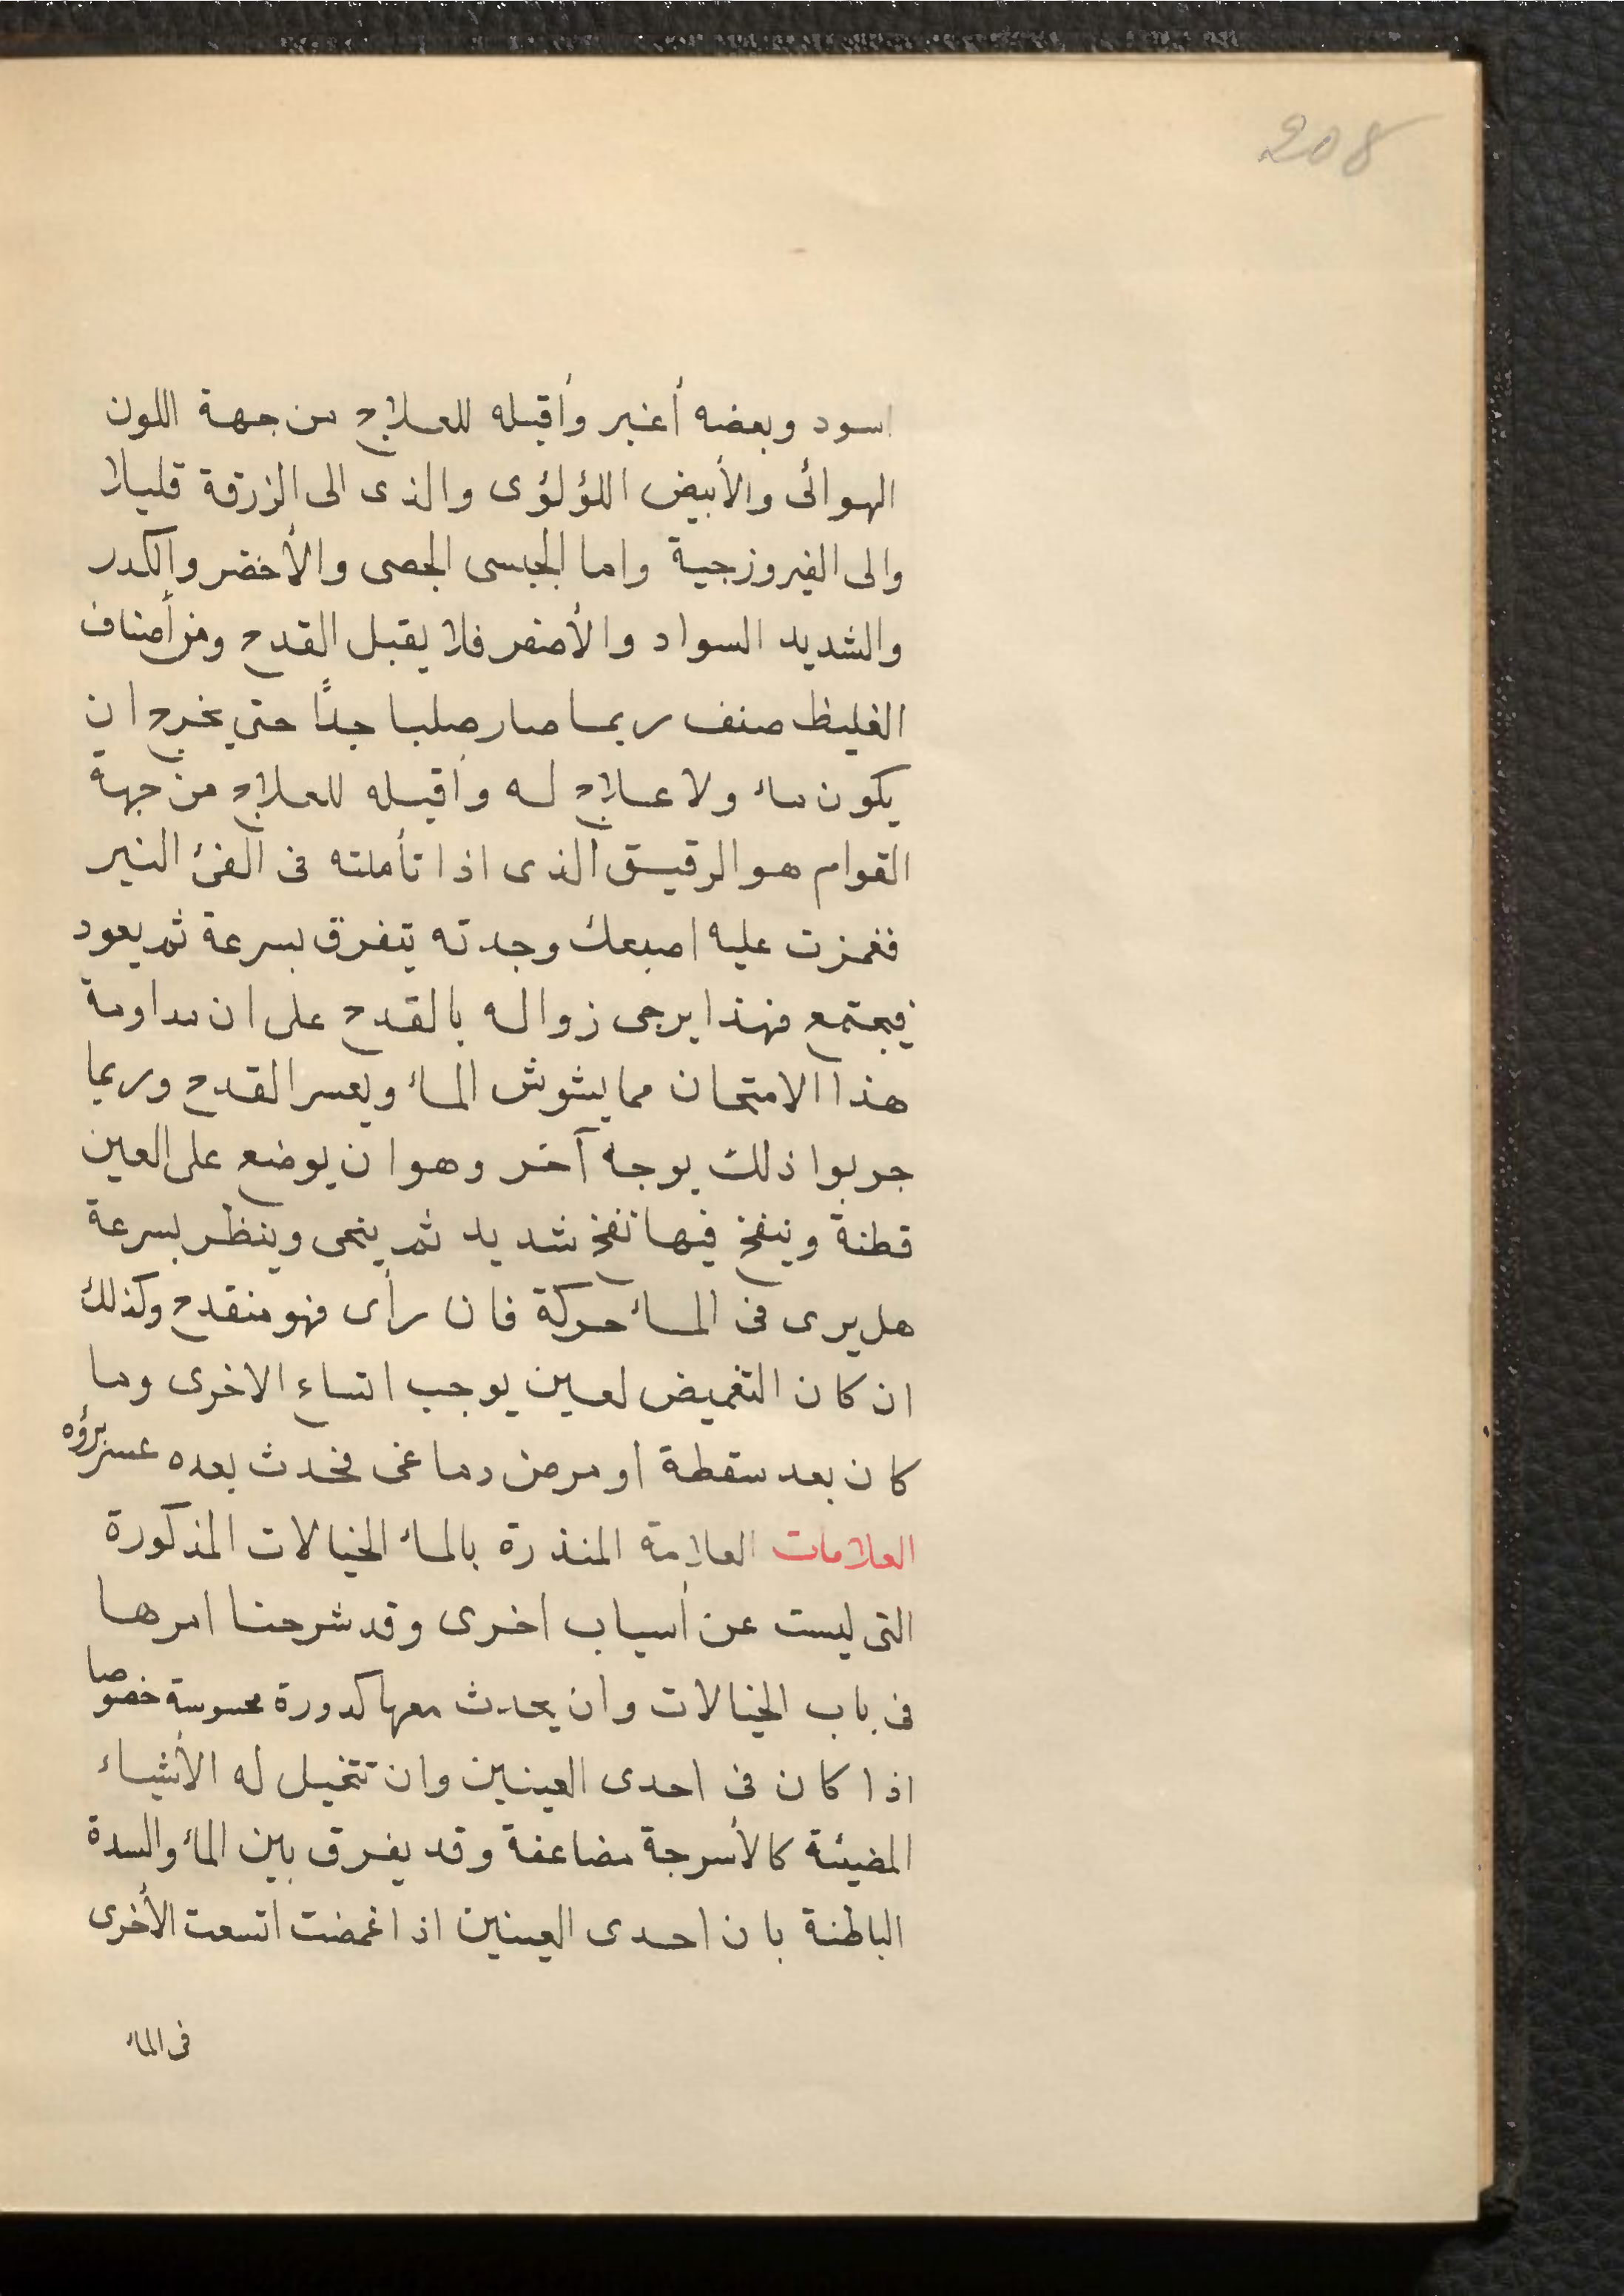 208
اسود وبعضه أغبر وأقبله للعلاج من جهة اللون
الهوائى والأبيض اللؤلؤى والذى الى الزرقة قليلا
والى الفيروزجية واما الجبسى الجصى والأخضر والكدر
والشديد السواد والأصفر فلا يقبل القدح ومن أصناف
الغليظ صنف ربما صار صلبا جداً حتى يخرج ان
يكون ماء ولا علاج له وأقبله للعلاج من جهة
القوام هو الرقيق الذى اذا تأملته فى الفئ النير
فغمزت عليه اصبعك وجدته يتفرق بسرعة ثم يعود
فيجتمع فهذا يرجى زواله بالقدح على ان مداومة
هذا الامتحان مما يشوش الماء ويعسر القدح وربما
جربوا ذلك بوجه آخر وهو ان يوضع على العين
قطنة وينفخ فيها نفخ شديد ثم ينحى وينظر بسرعة
هل يرى فى الماء حركة فان رأى فهو منقدح وكذلك
ان كان التغميض لعين يوجب اتساع الاخرى وما
كان بعد سقطة او مرض دماغى فحدث بعده عسر برؤه
العلامات العلامة المنذرة بالماء الخيالات المذكورة
التى ليست عن أسباب اخرى وقد شرحنا امرها
فى باب الخيالات وان يحدث معها كدورة محسوسة خصوصا
اذا كان فى احدى العينين وان تتخيل له الأشياء
المضيئة كالأسرجة مضاعفة وقد يفرق بين الماء والسدة
الباطنة بان احدى العينين اذا غمضت اتسعت الأخرى
فى الماء